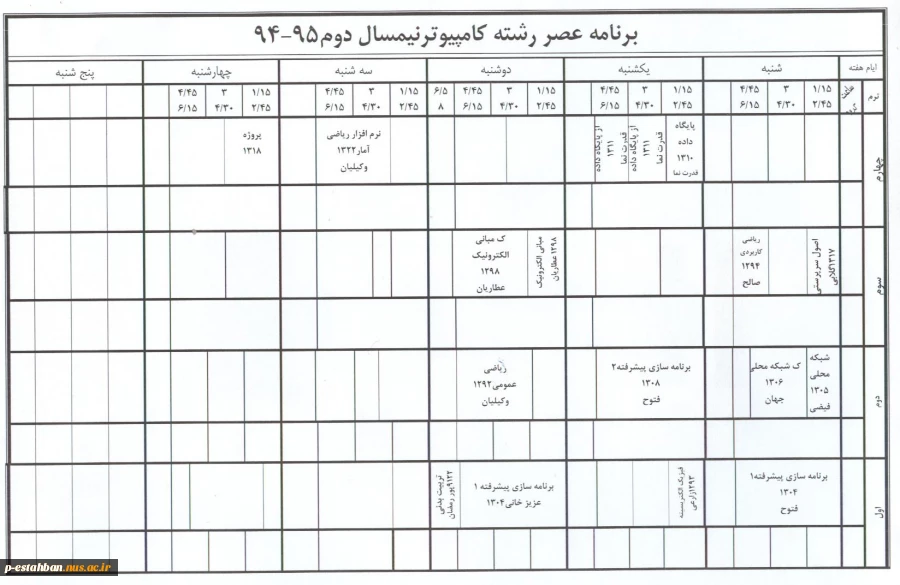 برنامه عصر رشته کامپیوتر نیمسال دوم ۹۵-۹۴
ایام هفته
شنبه
یکشنبه
دوشنبه
سه شنبه
چهارشنبه
پنج شنبه
ترم
۱/۱۵ ۳ ۴/۴۵
۲/۴۵ ۴/۳۰ ۶/۱۵
۱/۱۵ ۳ ۴/۴۵
۲/۴۵ ۴/۳۰ ۶/۱۵
۱/۱۵ ۳ ۴/۴۵ ۶/۵
۲/۴۵ ۴/۳۰ ۶/۱۵ ۸
۱/۱۵ ۳ ۴/۴۵
۲/۴۵ ۴/۳۰ ۶/۱۵
۱/۱۵ ۳ ۴/۴۵
۲/۴۵ ۴/۳۰ ۶/۱۵
چهارم
پایگاه
داده
۱۳۱۰
قدرت نما
از پایگاه داده
۱۳۱۱
قدرت نما
از پایگاه داده
۱۳۱۱
قدرت نما
نرم افزار ریاضی
آمار۱۳۲۲
وکیلیان
پروژه
۱۳۱۸
سوم
اصول سرپرستی
۱۳۱۷گلابی
ریاضی
کاربردی
۱۲۹۴
صالح
مبانی الکترونیک
۱۲۹۸ عطاریان
ک مبانی
الکترونیک
۱۲۹۸
عطاریان
دوم
شبکه
محلی
۱۳۰۵
فیضی
ک شبکه محلی
۱۳۰۶
جهان
برنامه سازی پیشرفته۲
۱۳۰۸
فتوح
ریاضی
عمومی۱۲۹۲
وکیلیان
اول
برنامه سازی پیشرفته۱
۱۳۰۴
فتوح
فیزیک الکتریسیته
۱۲۹۳زارعی
برنامه سازی پیشرفته ۱
عزیز خانی ۱۳۰۴
تربیت بدنی
۹۱۲۲پور رمضان
p-estahban.nus.ac.ir